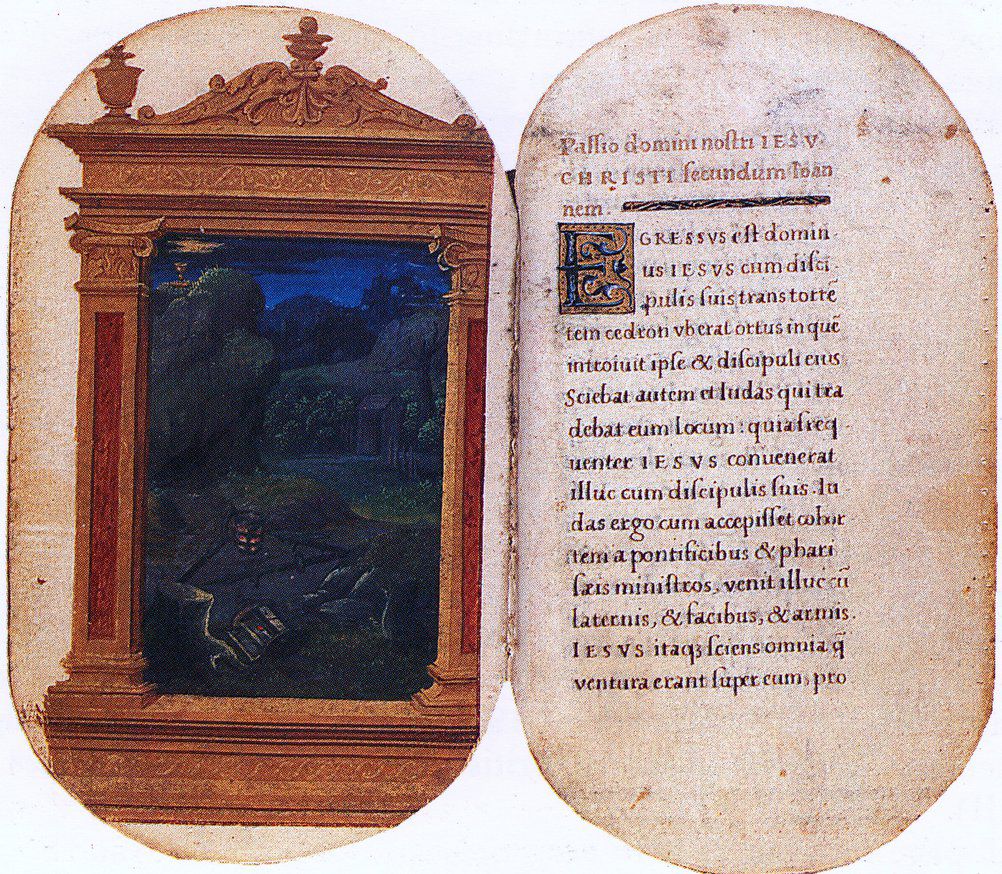 Passio domini nostri IESV
CHRISTI secundum Ioan
nem.
EGRESSVS est domin
us IESVS cum disci
pulis suis trans torrē
tem cedron vberat ortus in quē
introiuit ipse & discipuli eius
Sciebat autem et Iudas qui tra
debat eum locum: quia freq
uenter IESVS conuenerat
illuc cum discipulis suis. Iu
das ergo cum accepisset cohor
tem a pontificibus & phari
sæis ministros, venit illuc cū
laternis, & facibus, & armis.
IESVS itaqꝫ sciens omnia q̄
ventura erant super eum, pro